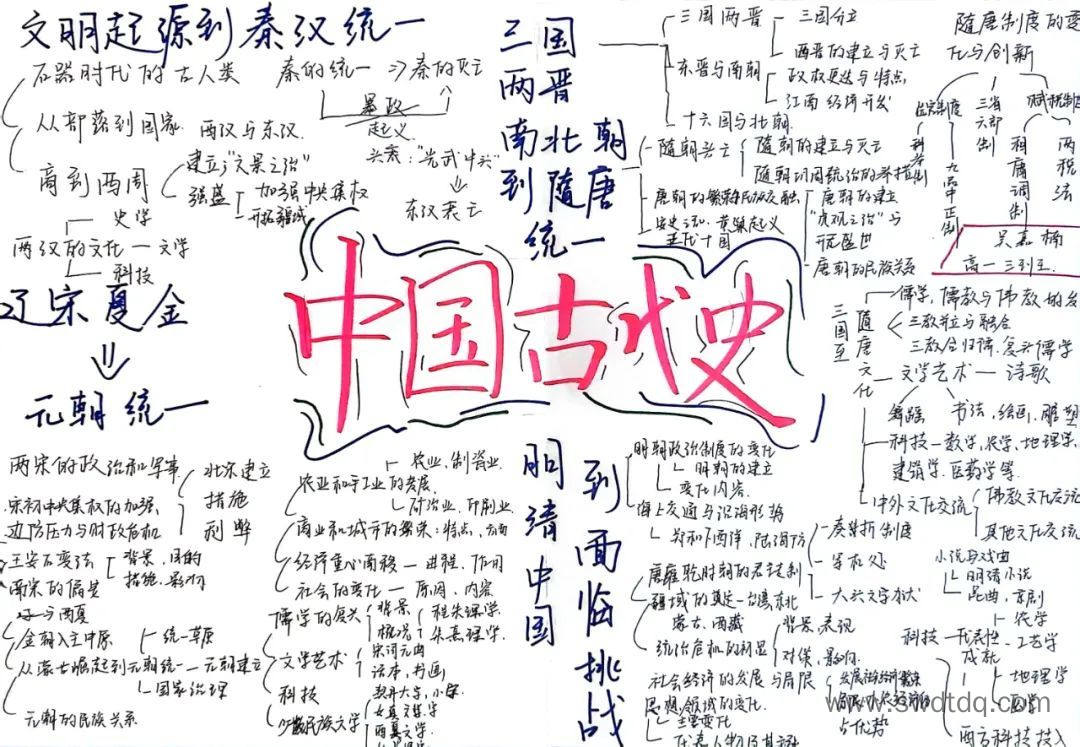 文明起源到秦汉统一
石器时代的古人类
从部落到国家
商到西周
秦的统一 ⇒ 秦的灭亡
暴政
起义
两汉与东汉
头衰:"光武中兴"
东汉衰亡
建立:"文景之治"
强盛
加强中央集权
开拓疆域
两汉的文化
史学
文学
科技
三国
两晋
南北朝
到隋唐
统一
三国两晋
三国分立
西晋的建立与灭亡
东晋与南朝
政权更迭与特点
江南经济开发
十六国与北朝
隋朝兴亡
隋朝的建立与灭亡
隋朝巩固统治的举措
唐朝的繁荣与民族交融
唐朝的建立
"贞观之治"与
开元盛世
唐朝的民族关系
安史之乱、黄巢起义
五代十国
隋唐制度的变
化与创新
选官制度
科举制
九品中正制
三省六部制
赋税制
租庸调制
两税法
高一三
中国古代史
三国至
隋唐文化
儒学,儒教与佛教的发
三教并立与融合
三教合归儒、复兴儒学
文学艺术 — 诗歌
舞蹈 书法,绘画,雕塑
科技 — 数学,农学,地理学,
建筑学.医药学等
中外文化交流
佛教文化交流
其他文化交流
辽宋夏金
⇓
元朝统一
两宋的政治和军事
北宋建立
措施
利弊
宋初中央集权的加强
边防压力与财政危机
王安石变法
背景,目的
措施,影响
南宋的偏安
辽与西夏
金朝入主中原
从蒙古崛起到元朝统一
统一草原
元朝建立
国家治理
元朝的民族关系
农业和手工业的发展
农业,制瓷业
矿冶业,印刷业
商业和城市的繁荣:特点,方面
经济重心南移 — 进程,作用
社会的变化 — 原因、内容
儒学的复兴
背景
概况
程朱理学
朱熹理学
文学艺术
宋词元曲
话本,书画
科技
少数民族文学
契丹大字,小字
女真文字
西夏文字
明清中国
到面临挑战
明朝政治制度的变化
明朝的建立
变化内容
海上交通与沿海形势
郑和下西洋,
康雍乾时期的君主专制
奏折制度
军机处
大兴文字狱
疆域的奠定 — 台湾东北
蒙古、西藏
统治危机的初显
背景 表现
对策,影响
社会经济的发展与局限
占优势
思想领域的变化
主要变化
代表人物及其主张
小说与戏曲
明清小说
昆曲,京剧
科技 — 代表性
成就
农学
工艺学
地理学
医学
西方科技传入
www.swdtdq.com